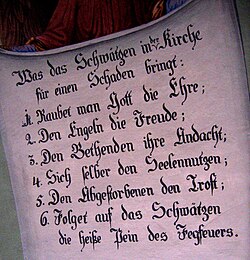 Was das Schwätzen in der Kirche
für einen Schaden bringt:
1. Raubet man Gott die Ehre;
2. Den Engeln die Freude;
3. Den Bethenden ihre Andacht;
4. Sich selber den Seelennutzen;
5. Den Abgestorbenen den Trost;
6. Folget auf das Schwätzen
die heiße Pein des Fegfeuers.